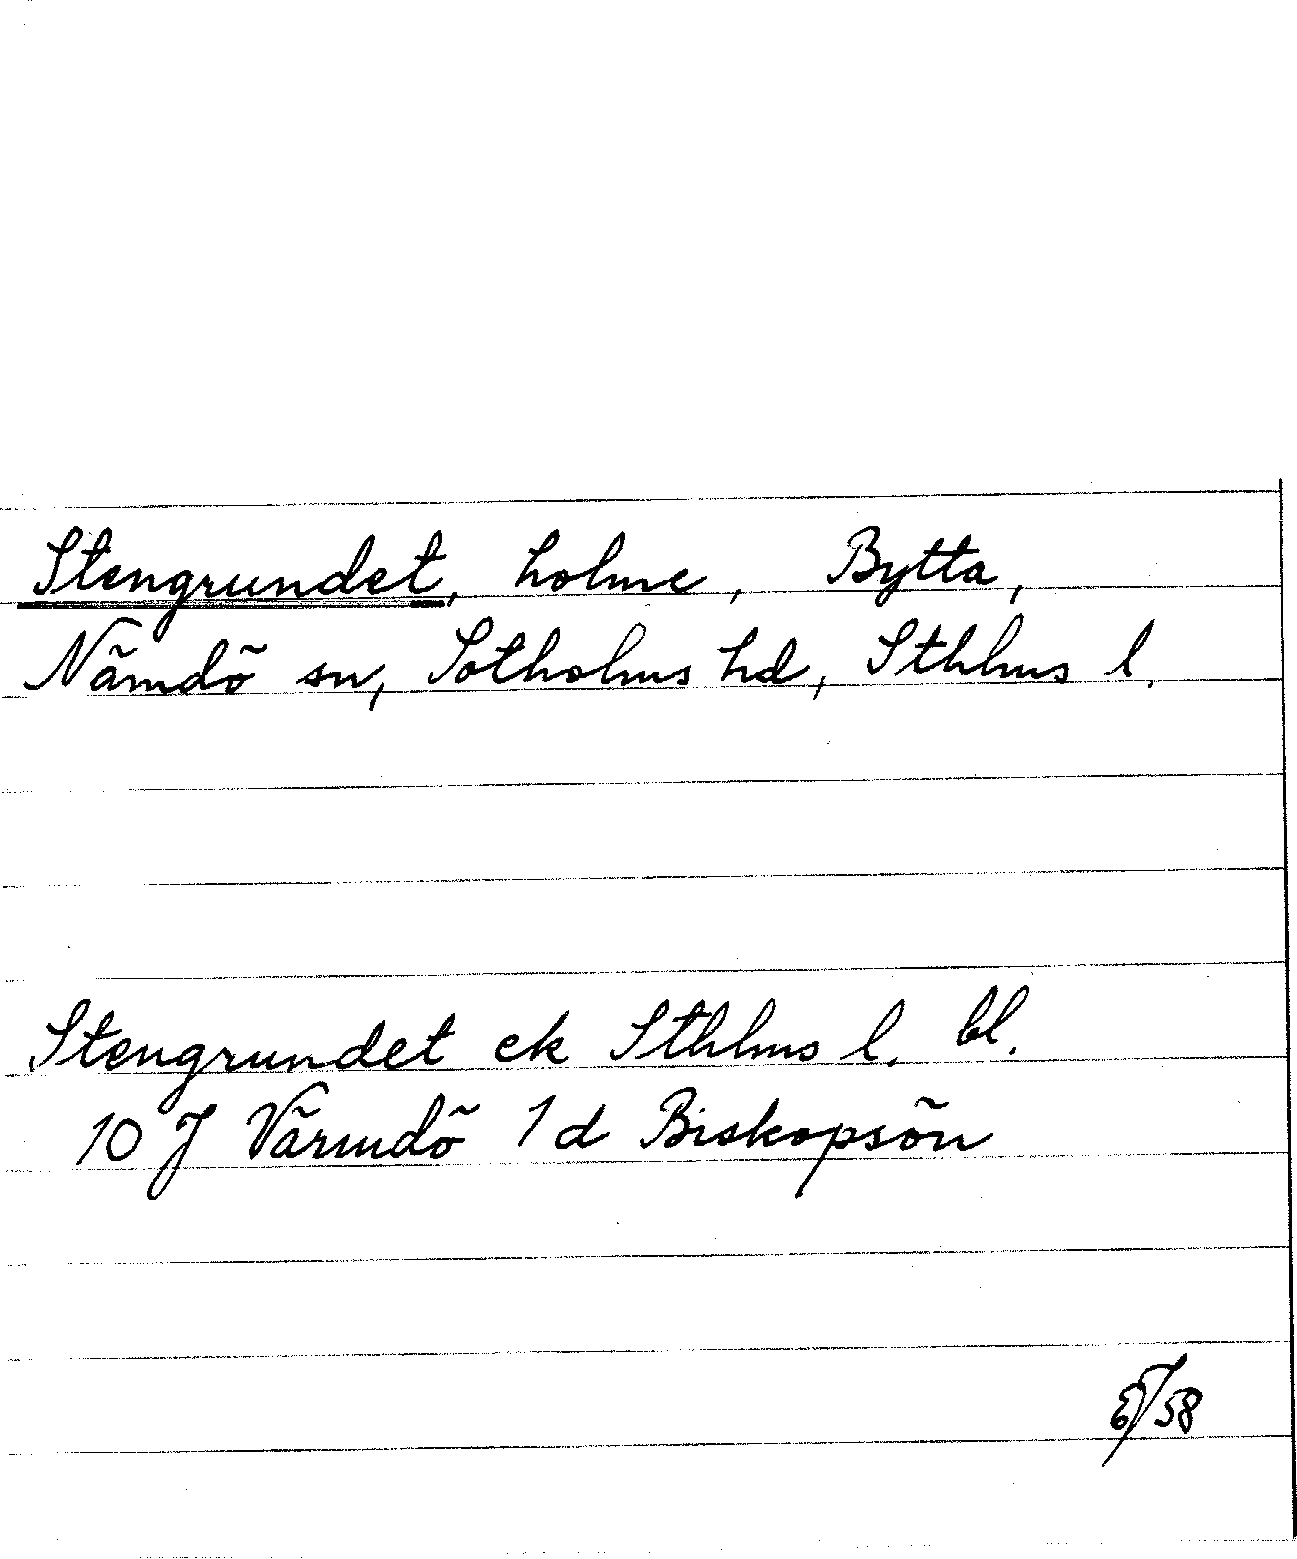 Stengrundet, holme, Bytta,
Nämdö sn, Sotholms hd, Sthlms l.
Stengrundet ek Sthlms l. bl.
10 J Värmdö 1 d Biskopsön
58